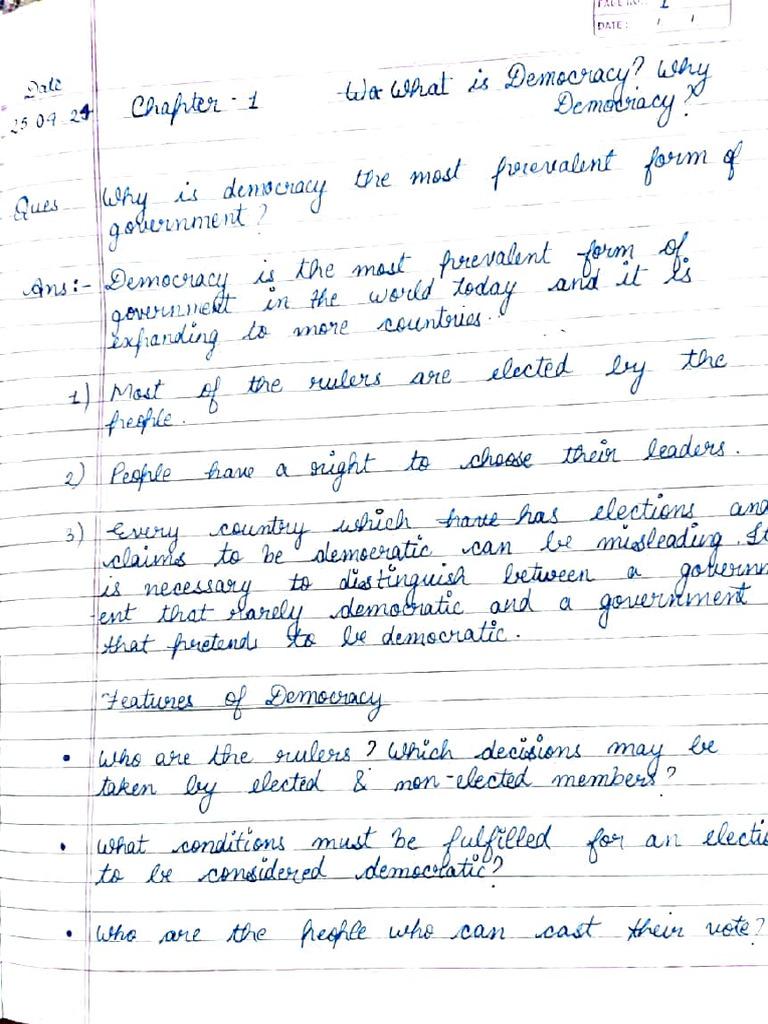 PAGE NO. 1
DATE: / /
Date
25 04 24
Chapter - 1 What is Democracy? Why
Democracy?
Ques Why is democracy the most prevalent form of
government?
Ans:- Democracy is the most prevalent form of
government in the world today and it is
expanding to more countries.
1) Most of the rulers are elected by the
people.
2) People have a right to choose their leaders.
3) Every country which have has elections and
claims to be democratic can be misleading. It
is necessary to distinguish between a governm
-ent that rarely democratic and a government
that pretends to be democratic.
Features of Democracy
• Who are the rulers? Which decisions may be
taken by elected & non-elected members?
• What conditions must be fulfilled for an electio
to be considered democratic?
• Who are the people who can cast their vote?